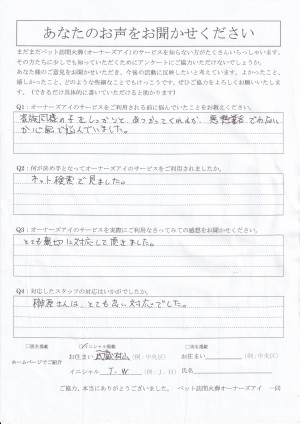 あなたのお声をお聞かせください
まだまだペット訪問火葬(オーナーズアイ)のサービスを知らない方がたくさんいらっしゃいます。
その方たちに少しでも知っていただくためにアンケートにご協力いただけないでしょうか。
あなた様のご意見をお聞かせいただき、今後の活動に反映したいと考えています。よかったこと、
嬉しかったこと、どのような些細なことでもけっこうです。ぜひご協力をよろしくお願いいたしま
す。（できるだけ具体的に書いていただけると助かります）
Q1：オーナーズアイのサービスをご利用される前に悩んでいたことをお教えください。
家族同様の子をしっかりと、あつかってくれるか、悪徳業者でわないか
か心配で悩んでいました。
Q2：何が決め手となってオーナーズアイのサービスをご利用されましたか。
ネット検索で見ました。
Q3：オーナーズアイのサービスを実際にご利用なさってみての感想をお聞かせください。
とても親切に対応して頂きました。
Q4：対応したスタッフの対応はいかがでしたか。
榊原さんは、とても良い対応でした。
ホームページでご紹介
□イニシャル掲載
お住まい 武蔵村山 (例：中央区)
お住まい (例：中央区)
イニシャル T.W (例：J．H)
氏名
ご協力、本当にありがとうございました。 ペット訪問火葬オーナーズアイ 一同